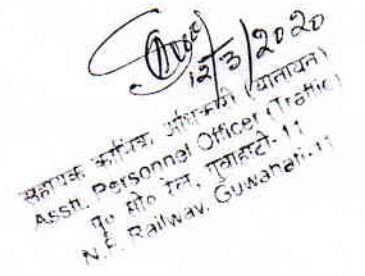 12/3/2020
सहायक कार्मिक अधिकारी (यातायात)
Asstt. Personnel Officer (Traffic)
पू० सी० रेल, गुवाहाटी-11
N.F. Railway, Guwahati-11